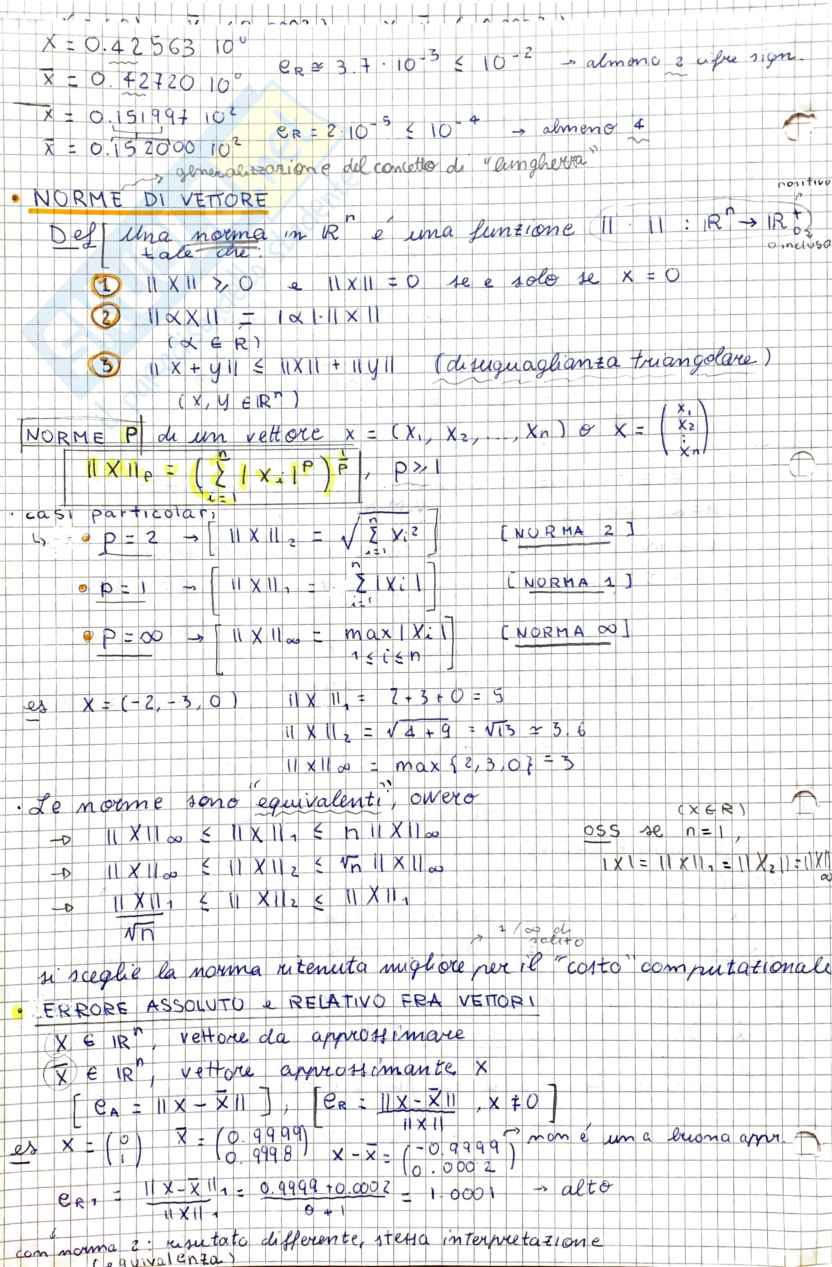 x = 0.42563 10⁰
x̄ = 0.42720 10⁰
e_R ≅ 3.7 · 10⁻³ ≤ 10⁻² → almeno 2 cifre sign.
x = 0.151997 10²
x̄ = 0.152000 10²
e_R = 2·10⁻⁵ ≤ 10⁻⁴ → almeno 4
→ generalizzazione del concetto di "lunghezza"
• NORME DI VETTORE
Def Una norma in ℝⁿ é una funzione || · || : ℝⁿ → ℝ₀⁺
positivo
0 incluso
tale che:
① ||x|| ≥ 0 e ||x|| = 0 se e solo se x = 0
② ||αx|| = |α|·||x||
(α ∈ ℝ)
③ ||x + y|| ≤ ||x|| + ||y|| (disuguaglianza triangolare)
(x, y ∈ ℝⁿ)
NORME P di un vettore x = (x₁, x₂, ..., xₙ) o x = (x₁ x₂ ⋮ xₙ)
||x||_p = (Σ_{i=1}^{n} |x_i|^p)^{1/p}, p ≥ 1
· casi particolari
↳ • p = 2 → [ ||x||₂ = √(Σ_{i=1}^{n} x_i²) ] [NORMA 2]
• p = 1 → [ ||x||₁ = Σ_{i=1}^{n} |x_i| ] [NORMA 1]
• p = ∞ → [ ||x||_∞ = max |x_i| ] [NORMA ∞]
1 ≤ i ≤ n
es x = (-2, -3, 0) ||x||₁ = 2+3+0 = 5
||x||₂ = √(4+9) = √13 ≃ 3.6
||x||_∞ = max {2,3,0} = 3
· Le norme sono "equivalenti", ovvero
→ ||x||_∞ ≤ ||x||₁ ≤ n ||x||_∞
→ ||x||_∞ ≤ ||x||₂ ≤ √n ||x||_∞
→ ||x||₁/√n ≤ ||x||₂ ≤ ||x||₁
(x ∈ ℝ)
OSS se n = 1,
|x| = ||x||₁ = ||x₂|| = ||x||_∞
1/∞ di solito
si sceglie la norma ritenuta migliore per il "costo" computazionale
• ERRORE ASSOLUTO e RELATIVO FRA VETTORI
x ∈ ℝⁿ, vettore da approssimare
x̄ ∈ ℝⁿ, vettore approssimante x
[e_A = ||x - x̄||], [e_R = ||x - x̄||/||x||, x ≠ 0]
es x = (0 1) x̄ = (0.9999 0.9998) x - x̄ = (-0.9999 0.0002) → non é una buona appr.
e_R₁ = ||x - x̄||₁/||x||₁ = (0.9999 + 0.0002)/(0 + 1) = 1.0001 → alto
con norma 2: risultato differente, stessa interpretazione
(equivalenza)